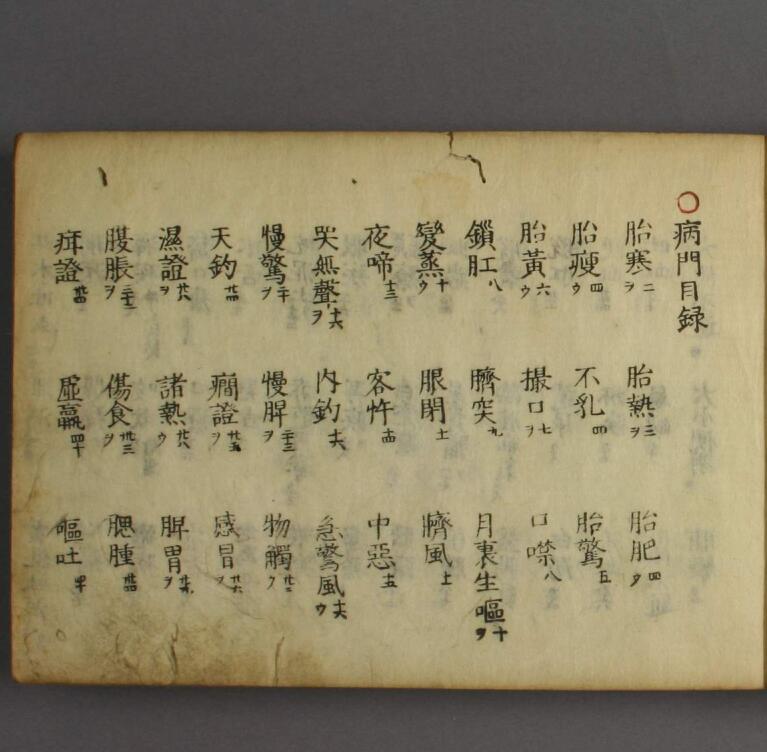 ○病門目録
胎寒二ヲ 胎熱三ヲ 胎肥四ウ
胎瘦四ウ 不乳四 胎驚五
胎黃六ウ 撮口七ヲ 口噤八
鎖肛八 臍突九 月裏生嘔十ヲ
變蒸十ウ 眼閉十一 臍風十一
夜啼十三 客忤十四 中惡十五
哭無聲十六ヲ 內釣十六 急驚風十六ウ
慢驚二十ヲ 慢脾二十三ヲ 物觸廿三ウ
天釣廿四 癇證廿五 感冒廿六
濕證廿八ヲ 諸熱廿八ウ 脾胃廿九ヲ
腹脹三十二ヲ 傷食卅三ヲ 腮腫卅四
疳證卅四 虛羸四十 嘔吐四十